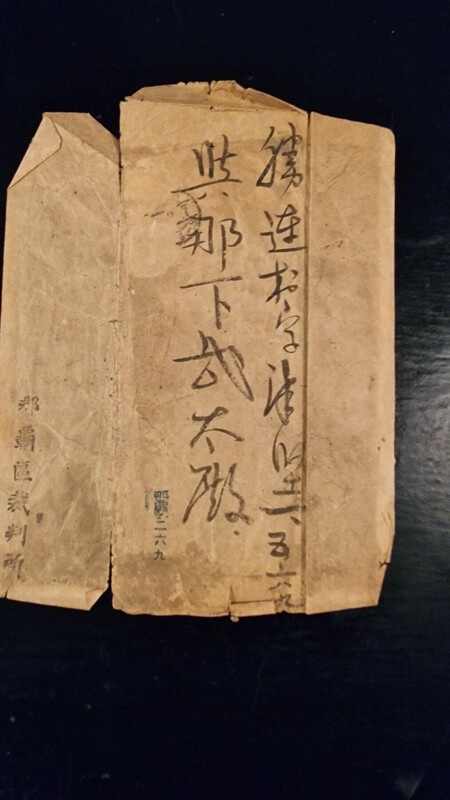 勝連村字津堅一、五六九
與那下武太殿
那覇 二六九
那覇區裁判所